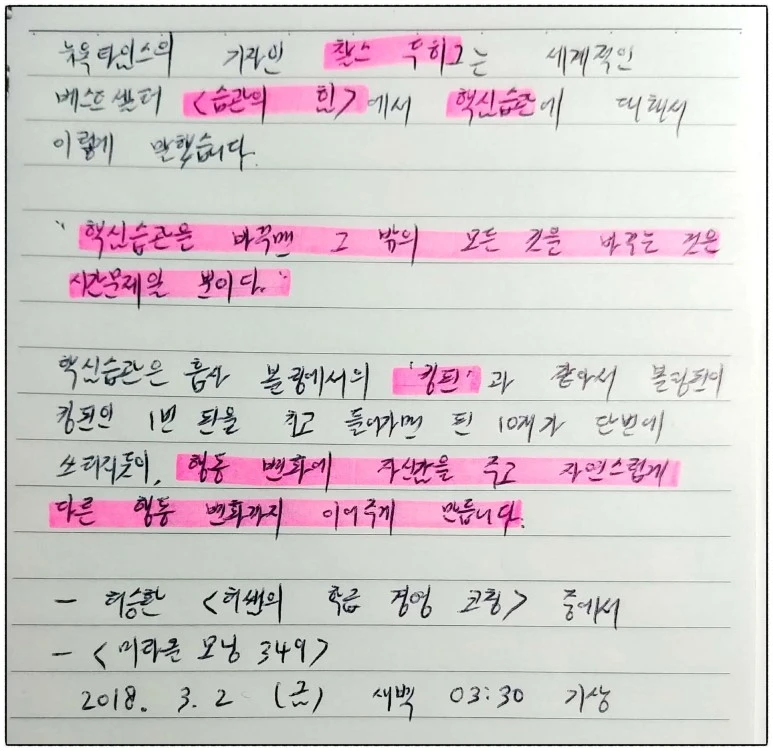 뉴욕타임스의 기자인 찰스 두히그는 세계적인
베스트셀러 <습관의 힘>에서 핵심습관에 대해서
이렇게 말했습니다.
"핵심습관을 바꾸면 그 밖의 모든 것을 바꾸는 것은
시간문제일 뿐이다."
핵심습관은 흡사 볼링에서의 '킹핀'과 같아서 볼링핀이
킹핀인 1번 핀을 치고 들어가면 핀 10개가 단번에
쓰러지듯이, 행동 변화에 자신감을 주고 자연스럽게
다른 행동 변화까지 이어주게 만듭니다.
- 허승환 <허쌤의 학급 경영 코칭> 중에서
- <미라클 모닝 349>
2018. 3. 2 (금) 새벽 03:30 기상